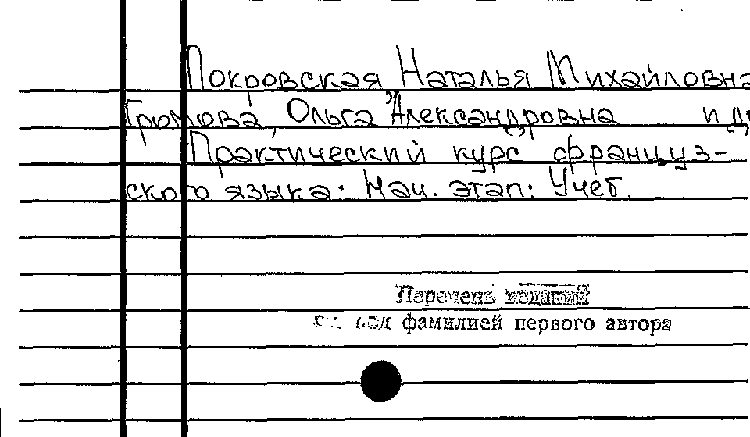 Покровская Наталья Михайловна
Громова, Ольга Александровна и др
Практический курс француз-
ского языка: Нач. этап: Учеб.
Перечень изданий
см. под фамилией первого автора